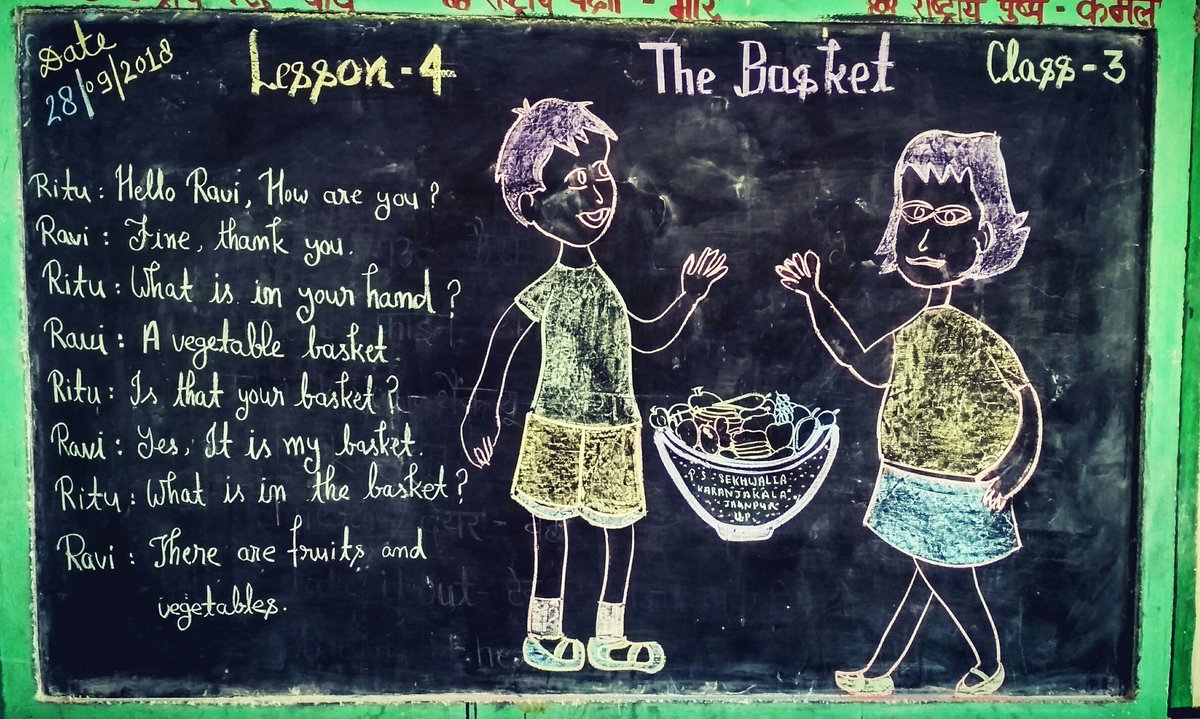 राष्ट्रीय पक्षी - मोर
राष्ट्रीय पुष्प - कमल
Date
28/09/2018
Lesson - 4
The Basket
Class - 3
Ritu : Hello Ravi, How are you ?
Ravi : Fine, thank you.
Ritu : What is in your hand ?
Ravi : A vegetable basket.
Ritu : Is that your basket ?
Ravi : Yes, It is my basket.
Ritu : What is in the basket ?
Ravi : There are fruits and
vegetables.
P.S - SEKHWALIA
KARANJAKALA
JAUNPUR
U.P.